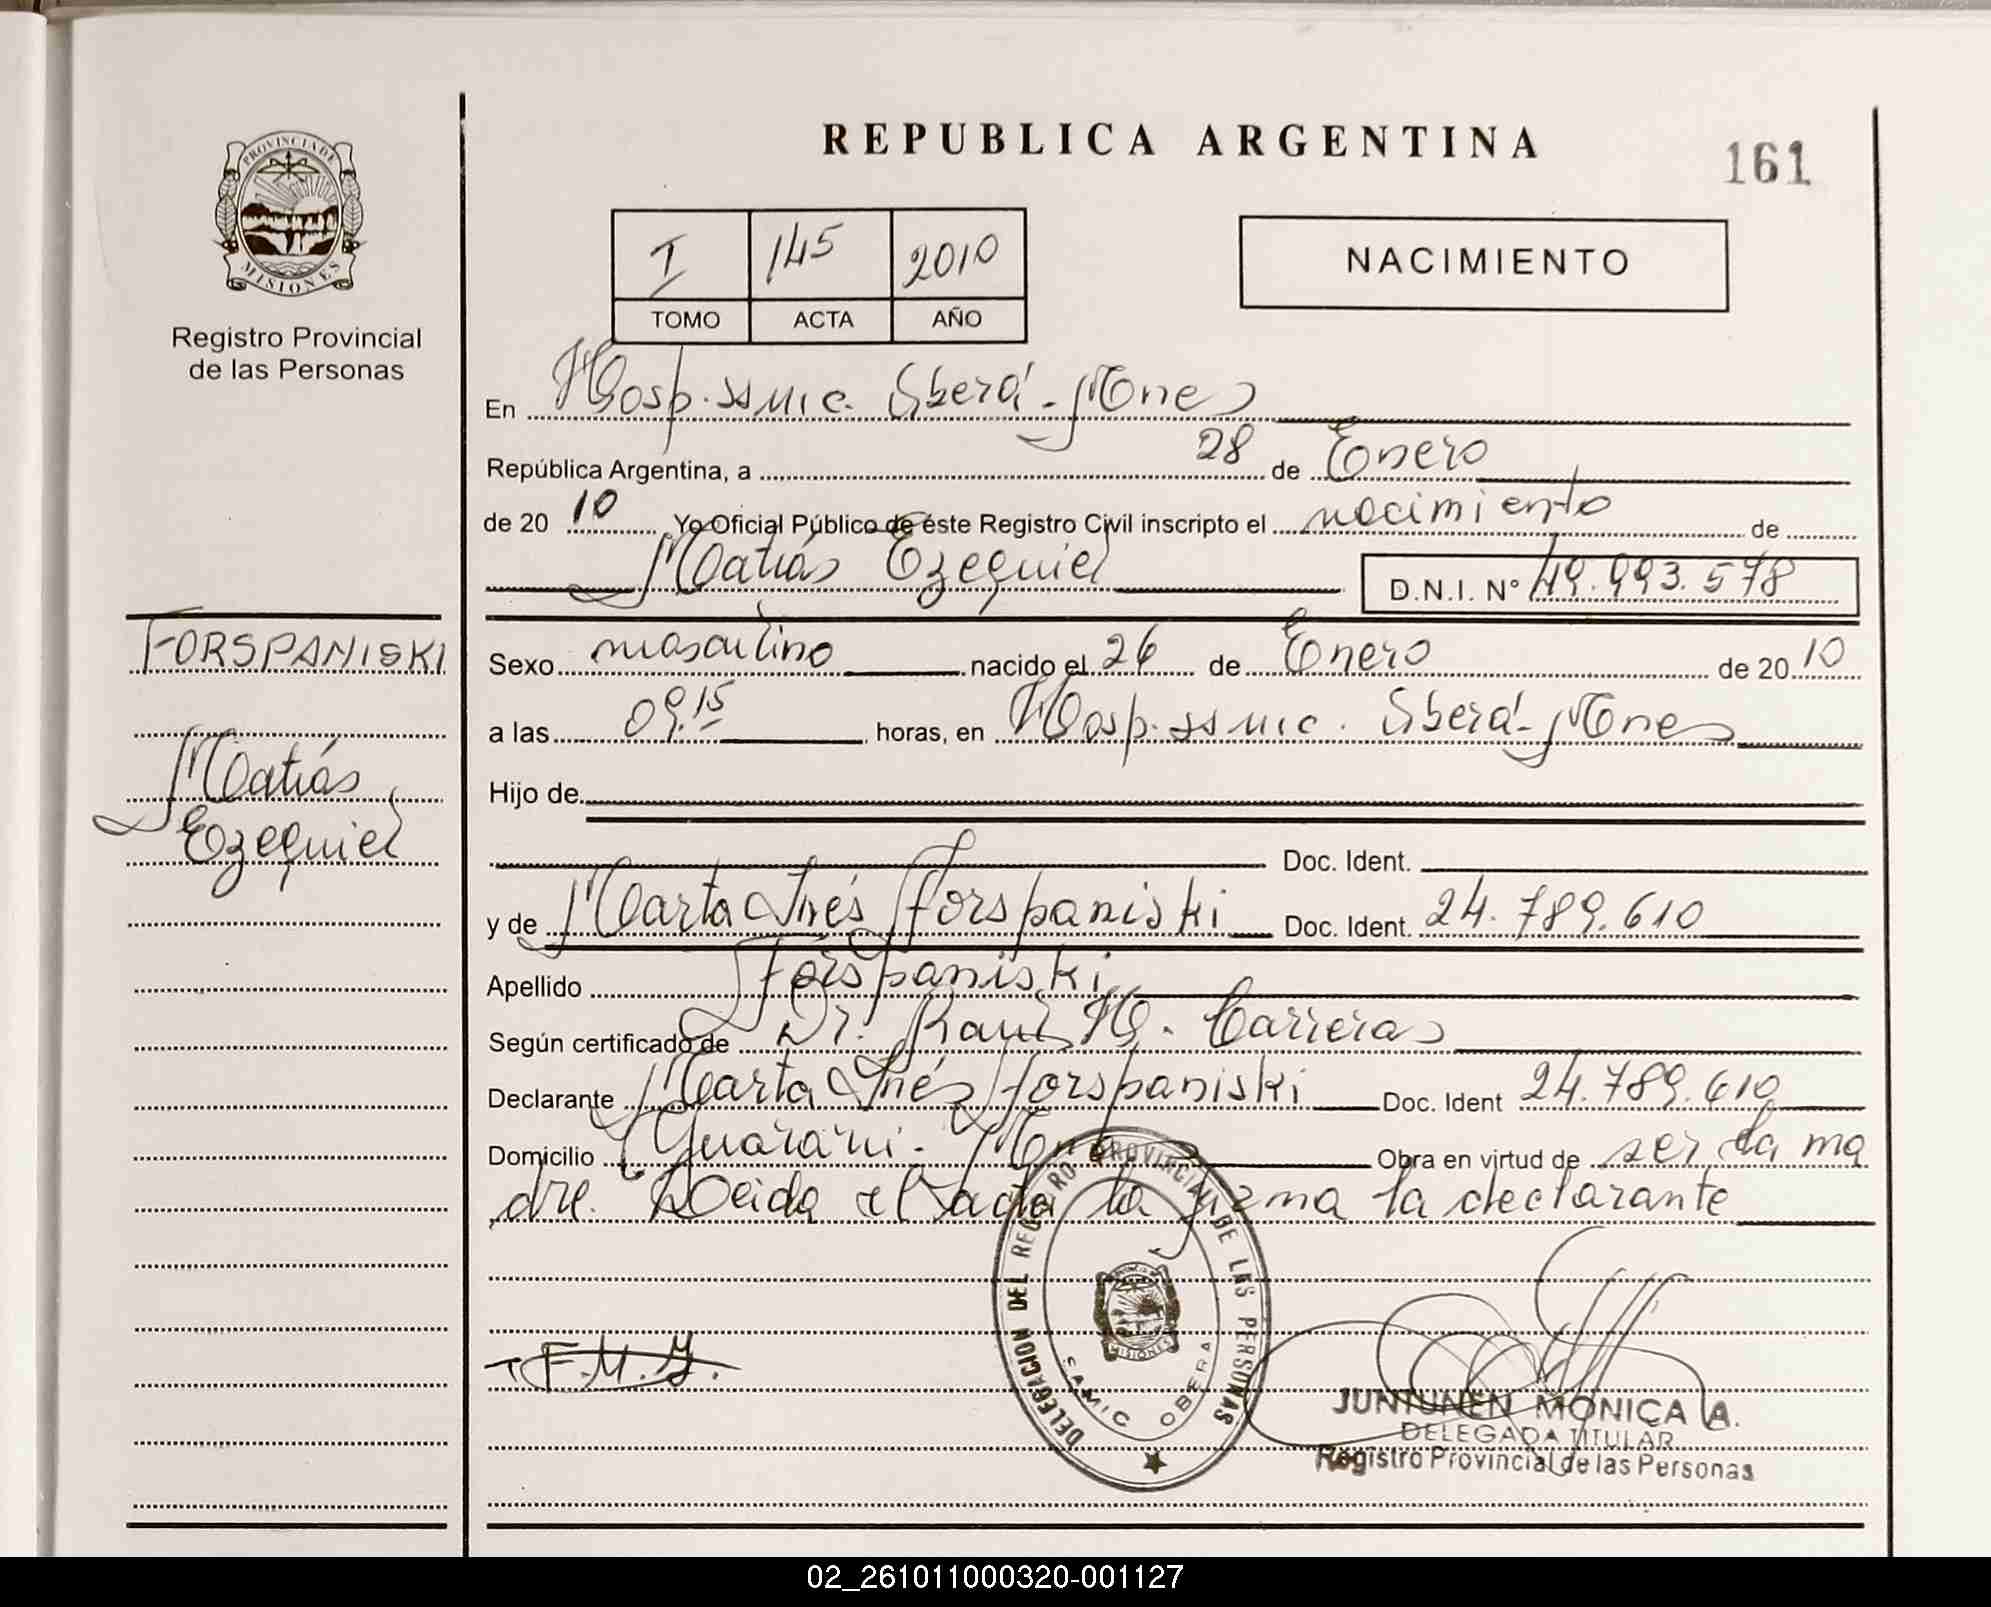 REPUBLICA ARGENTINA
161
PROVINCIA DE
MISIONES
Registro Provincial
de las Personas
I 145 2010
TOMO ACTA AÑO
NACIMIENTO
En Hosp. Oberá - Mnes
República Argentina, a 28 de Enero
de 20 10 Yo Oficial Público de éste Registro Civil inscripto el nacimiento de
Matías Ezequiel D.N.I. Nº 49.993.578
FORSPANISKI
Matías
Ezequiel
Sexo masculino nacido el 26 de Enero de 20 10
a las 09.15 horas, en Hosp. Oberá - Mnes
Hijo de
Doc. Ident.
y de Marta Inés Forspaniski Doc. Ident. 24.789.610
Apellido Forspaniski
Según certificado de Dr. Raúl H. Carreras
Declarante Marta Inés Forspaniski Doc. Ident 24.789.610
Domicilio Guaraní - Mnes Obra en virtud de ser la ma
dre. Leida el acta la firma la declarante
F.M.I.
DELEGACION DEL REGISTRO PROVINCIAL DE LAS PERSONAS
MISIONES
SAMIC OBERA
JUNTUNEN MONICA A.
DELEGADA TITULAR
Registro Provincial de las Personas
02_261011000320-001127